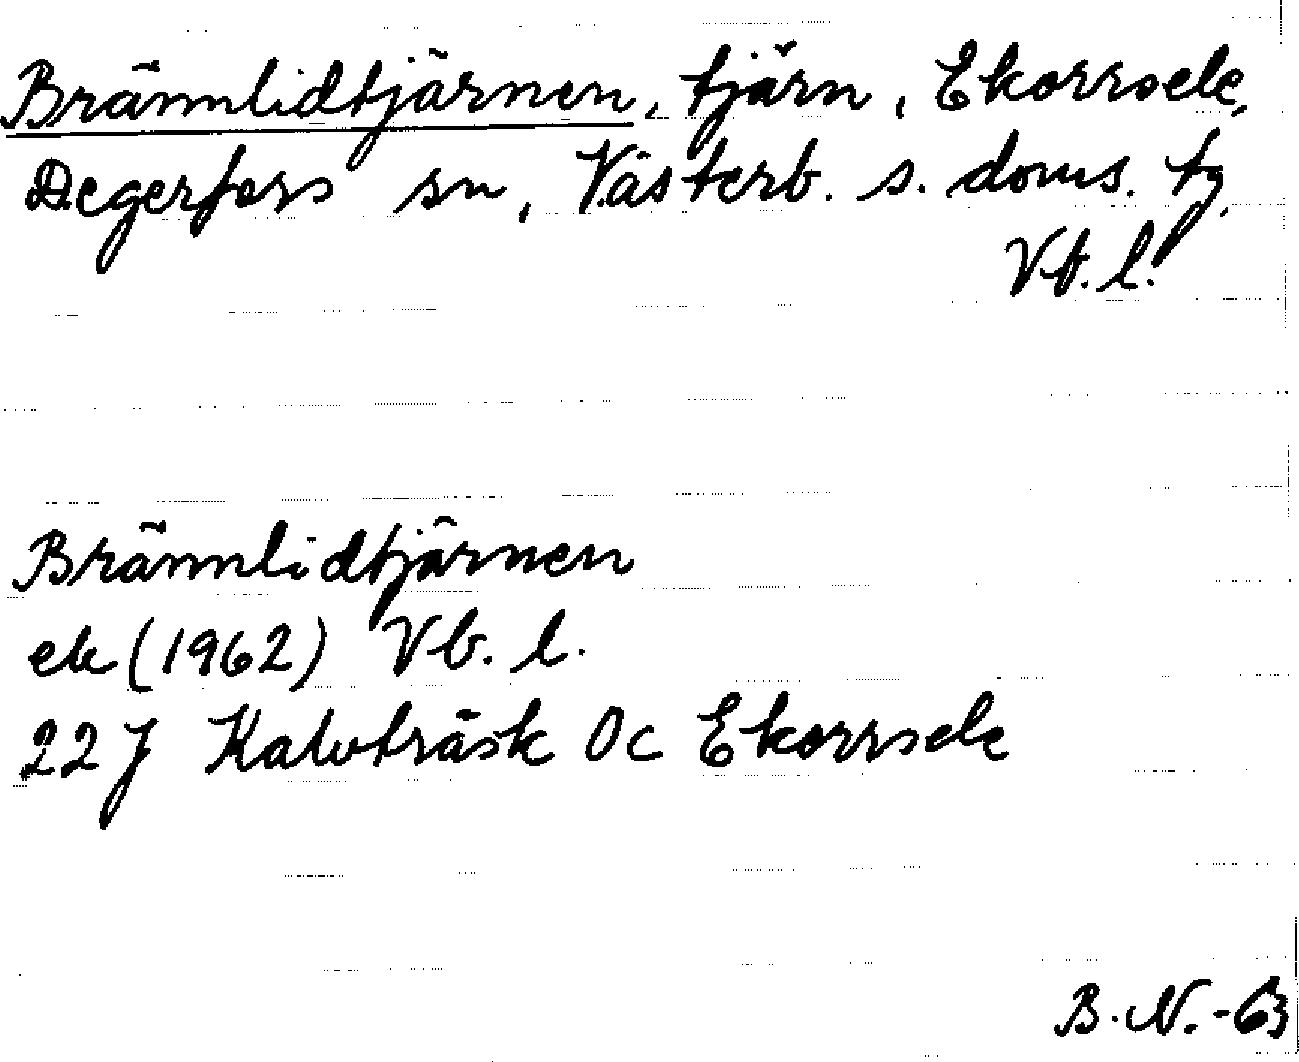 Brännlidtjärnen, tjärn, Ekorrsele,
Degerfors sn, Västerb. s. doms. tg,
Vb. l.
Brännlidtjärnen
ek (1962) Vb. l.
22 J Kalvträsk 0c Ekorrsele
B. N. -63